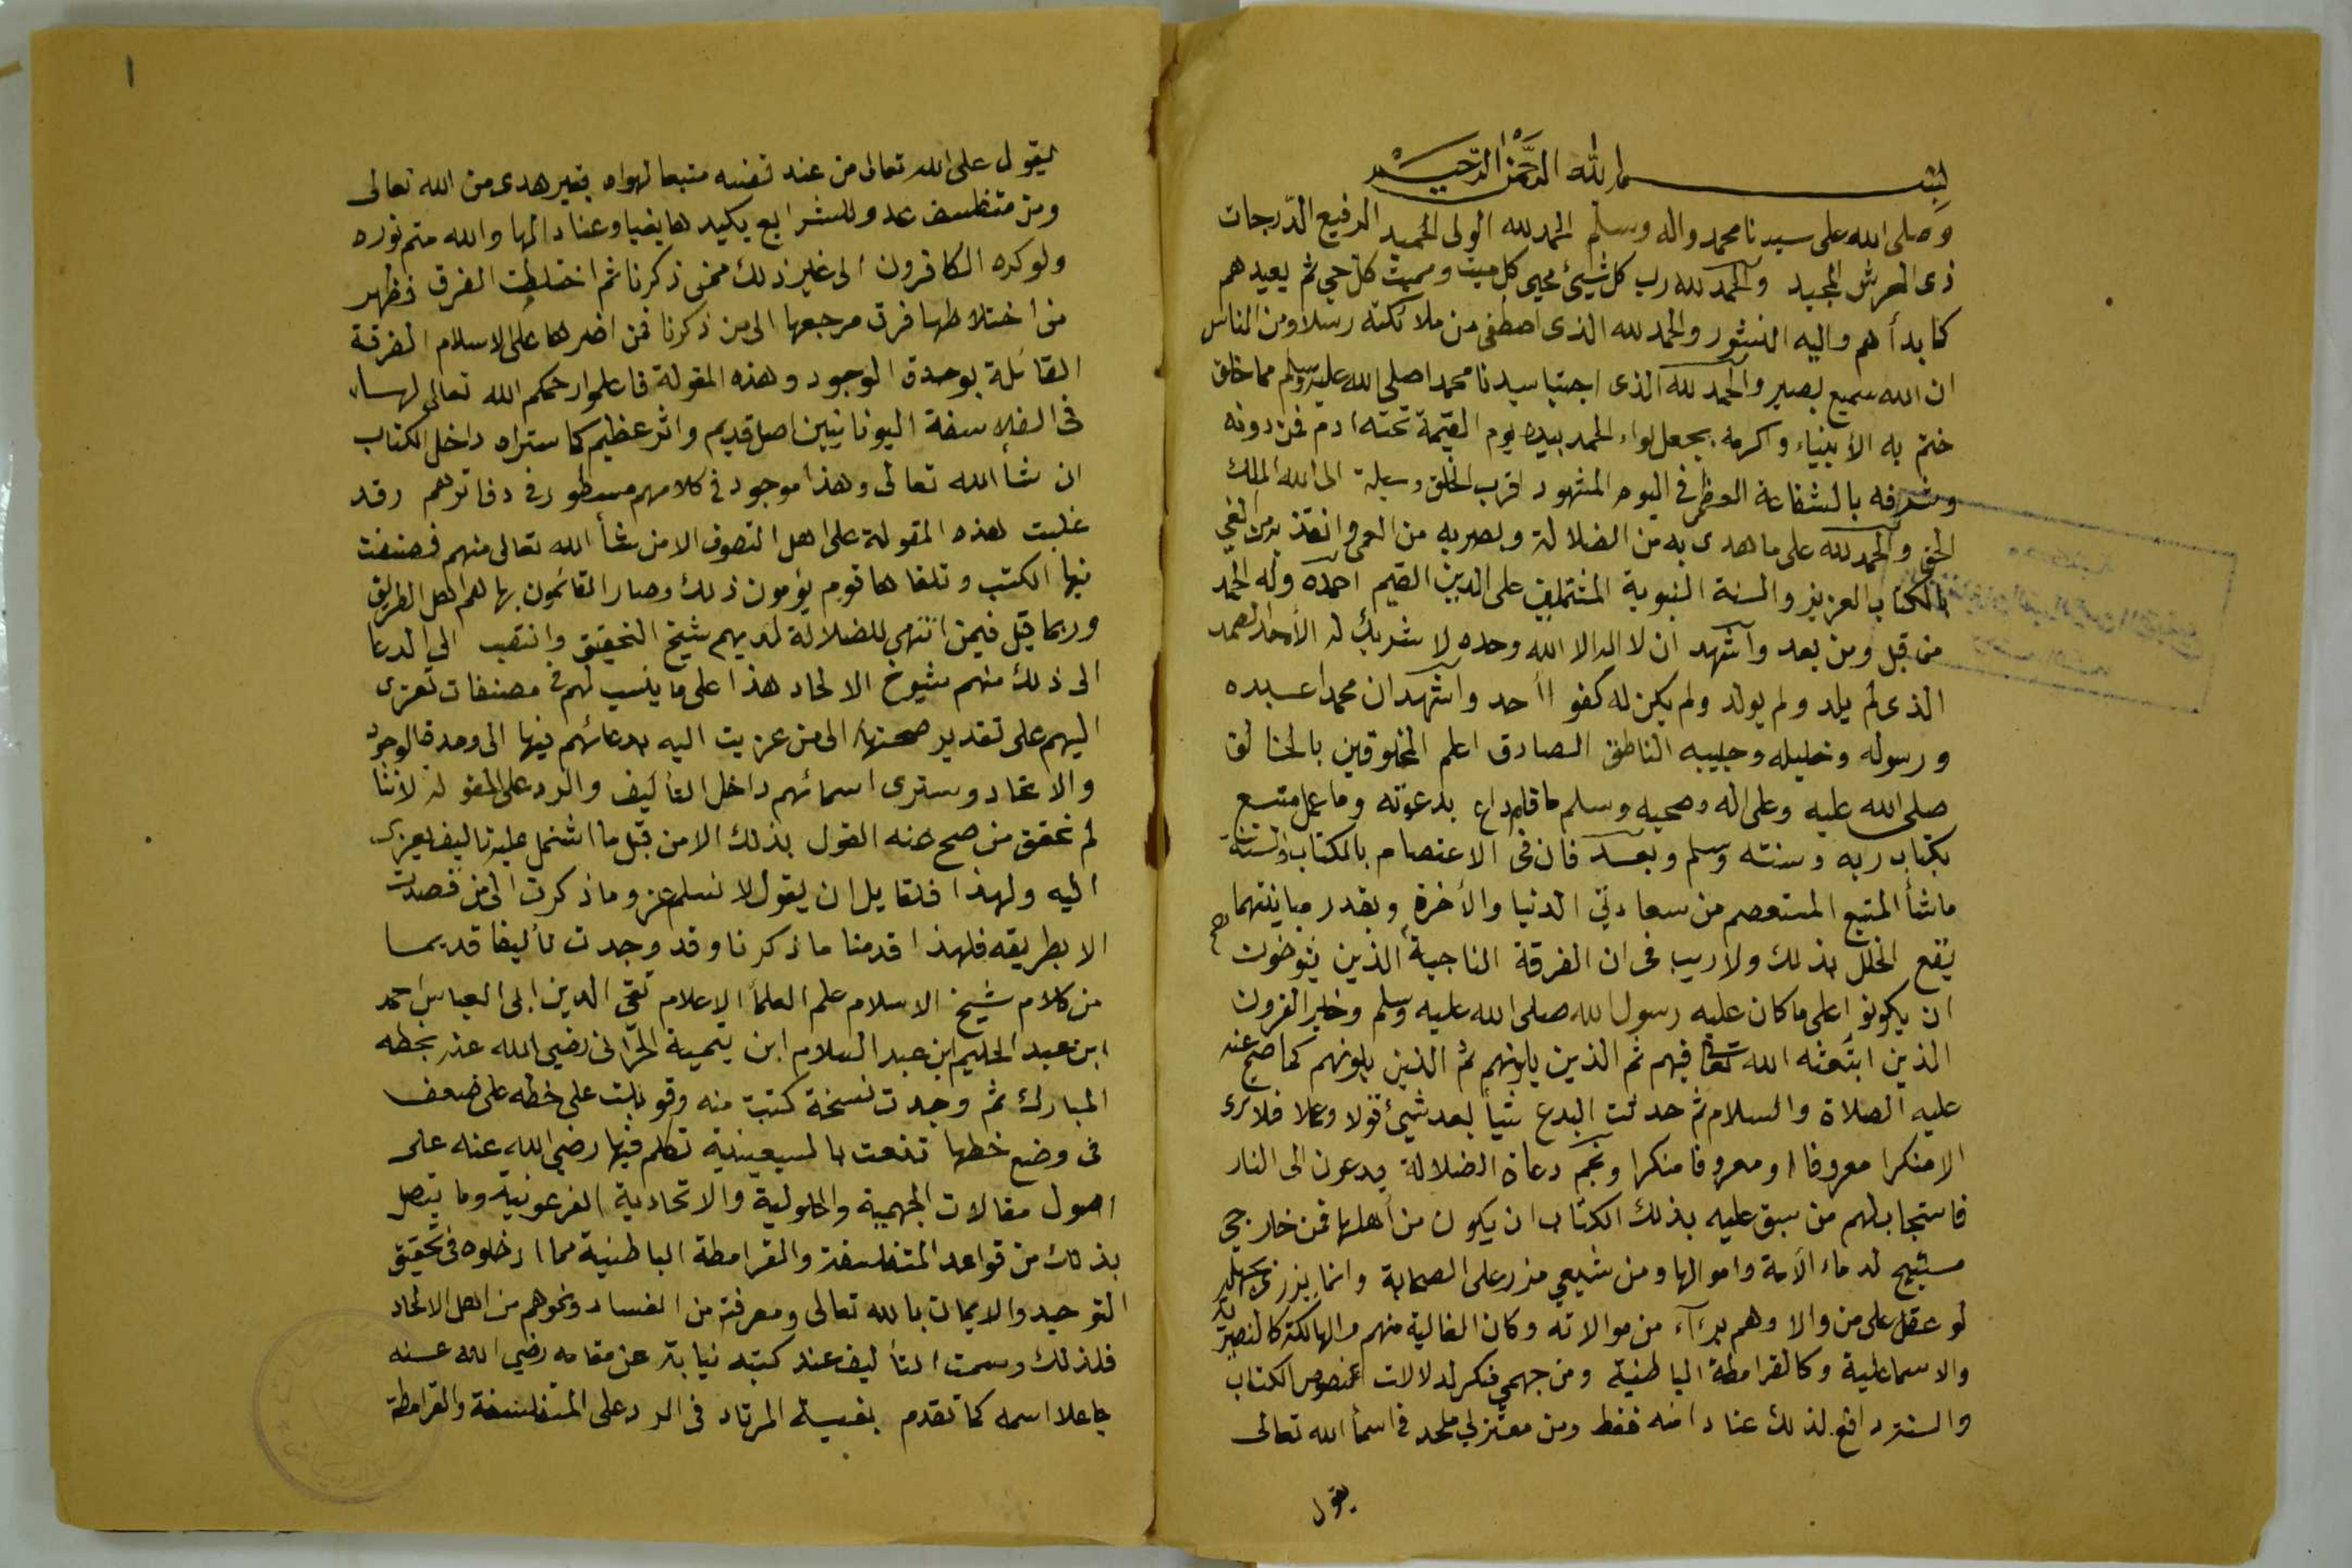 بسم الله الرحمن الرحيم
وصلى الله على سيدنا محمد واله وسلم الحمد لله الولى الحميد الرفيع الدرجات
ذى العرش المجيد والحمد لله رب كل شيئ محيى كل ميت ومميت كل حي ثم يعيدهم
كما بدأهم واليه النشور والحمد لله الذى اصطفى من ملائكته رسلا ومن الناس
ان الله سميع بصير والحمد لله الذى اجتبا سيدنا محمدا صلى الله عليه وسلم مما خلق
ختم به الأنبياء واكرمه بجعل لواء الحمد بيده يوم القيمة تحته ادم فمن دونه
وشرفه بالشفاعة العظمى فى اليوم المشهود اقرب الخلق وسيلة الى الله الملك
الحق والحمد لله على ما هدى به من الضلالة وبصر به من العمى وانقذ به من الغي
بالكتاب العزيز والسنة النبوية المشتملين على الدين القيم احمده وله الحمد
من قبل ومن بعد وأشهد ان لا اله الا الله وحده لا شريك له الأحد الصمد
الذى لم يلد ولم يولد ولم يكن له كفوا أحد واشهد ان محمدا عبده
ورسوله وخليله وحبيبه الناطق الصادق اعلم المخلوقين بالخالق
صلى الله عليه وعلى اله وصحبه وسلم ما قام داع بدعوته وما عمل متبع
بكتاب ربه وسنته وسلم وبعد فان فى الاعتصام بالكتاب والسنة
ما شأ المتبع المستعصم من سعادتي الدنيا والأخرة وبقدر مباينتهما
يقع الخلل بذلك ولا ريب فى ان الفرقة الناجية الذين يتوخون
ان يكونوا على ما كان عليه رسول الله صلى الله عليه وسلم وخير القرون
الذين ابتعثه الله تعالى فيهم ثم الذين يلونهم ثم الذين يلونهم كما صح عنه
عليه الصلاة والسلام ثم حدثت البدع شيأ بعد شيئ قولا وعملا فلا ترى
الا منكرا معروفا او معروفا منكرا ونجم دعاة الضلالة يدعون الى النار
فاستجاب لهم من سبق عليه بذلك الكتاب ان يكون من أهلها فمن خارجي
مستبيح لدماء الأمة واموالها ومن شيعي مزر على الصحابة وانما يزرى بجهله
لو عقل على من والا وهم برءآء من موالاته وكان الغالية منهم والهالكة كالنصيرية
والاسماعلية وكالقرامطة الباطنية ومن جهمي منكر لدلالات نصوص الكتاب
والسنة دافع لذلك عنادا منه فقط ومن معتزلي ملحد فى اسمأ الله تعالى
يقول
١
يقول على الله تعالى من عند نفسه متبعا لهواه بغير هدى من الله تعالى
ومن متفلسف عدو للشرايع يكيدها بغيا وعنادا لها والله متم نوره
ولو كره الكافرون الى غير ذلك ممن ذكرنا ثم اختلطت الفرق فظهر
من اختلاطها فرق مرجعها الى من ذكرنا فمن اضرها على الاسلام الفرقة
القائلة بوحدة الوجود وهذه المقولة فاعلموا رحمكم الله تعالى لها
فى الفلاسفة اليونانيين اصل قديم واثر عظيم كما ستراه داخل الكتاب
ان شأ الله تعالى وهذا موجود فى كلامهم مسطور فى دفاترهم وقد
غلبت هذه المقولة على اهل التصوف الا من شأ الله تعالى منهم فصنفت
فيها الكتب وتلقاها قوم يؤمون ذلك وصار القائمون بها هم اهل الطريق
وربما قيل فيمن انتهى للضلالة لديهم شيخ التحقيق وانتصب الى الدعا
الى ذلك منهم شيوخ الالحاد هذا على ما ينسب لهم فى مصنفات تعزى
اليهم على تقدير صحتها الى من عزيت اليه بدعائهم فيها الى وحدة الوجود
والاتحاد وسترى اسمائهم داخل التأليف والرد على المقولة لاننا
لم نحقق من صح عنه القول بذلك الا من قبل ما اشتمل عليه تاليف يعزى
اليه ولهذا فلقايل ان يقول لا نسلم عزو ما ذكرت الى من قصدت
الا بطريقه فلهذا قدمنا ما ذكرنا وقد وجدت تأليفا قديما
من كلام شيخ الاسلام علم العلمأ الاعلام تقي الدين ابى العباس احمد
ابن عبد الحليم ابن عبد السلام ابن تيمية الحرانى رضي الله عنه بخطه
المبارك ثم وجدت نسخة كتبت منه وقوبلت على خطه على ضعف
فى وضع خطها تنعت بالسبعينية تكلم فيها رضي الله عنه على
اصول مقالات الجهمية والحلولية والاتحادية الفرعونية وما يتصل
بذلك من قواعد المتفلسفة والقرامطة الباطنية مما ادخلوه فى تحقيق
التوحيد والايمان بالله تعالى ومعرفته من الفساد ونحوهم من اهل الالحاد
فلذلك وسمت التأليف عند كتبه نيابة عن مقامه رضي الله عنه
جاعلا اسمه كما تقدم بغية المرتاد فى الرد على المتفلسفة والقرامطة